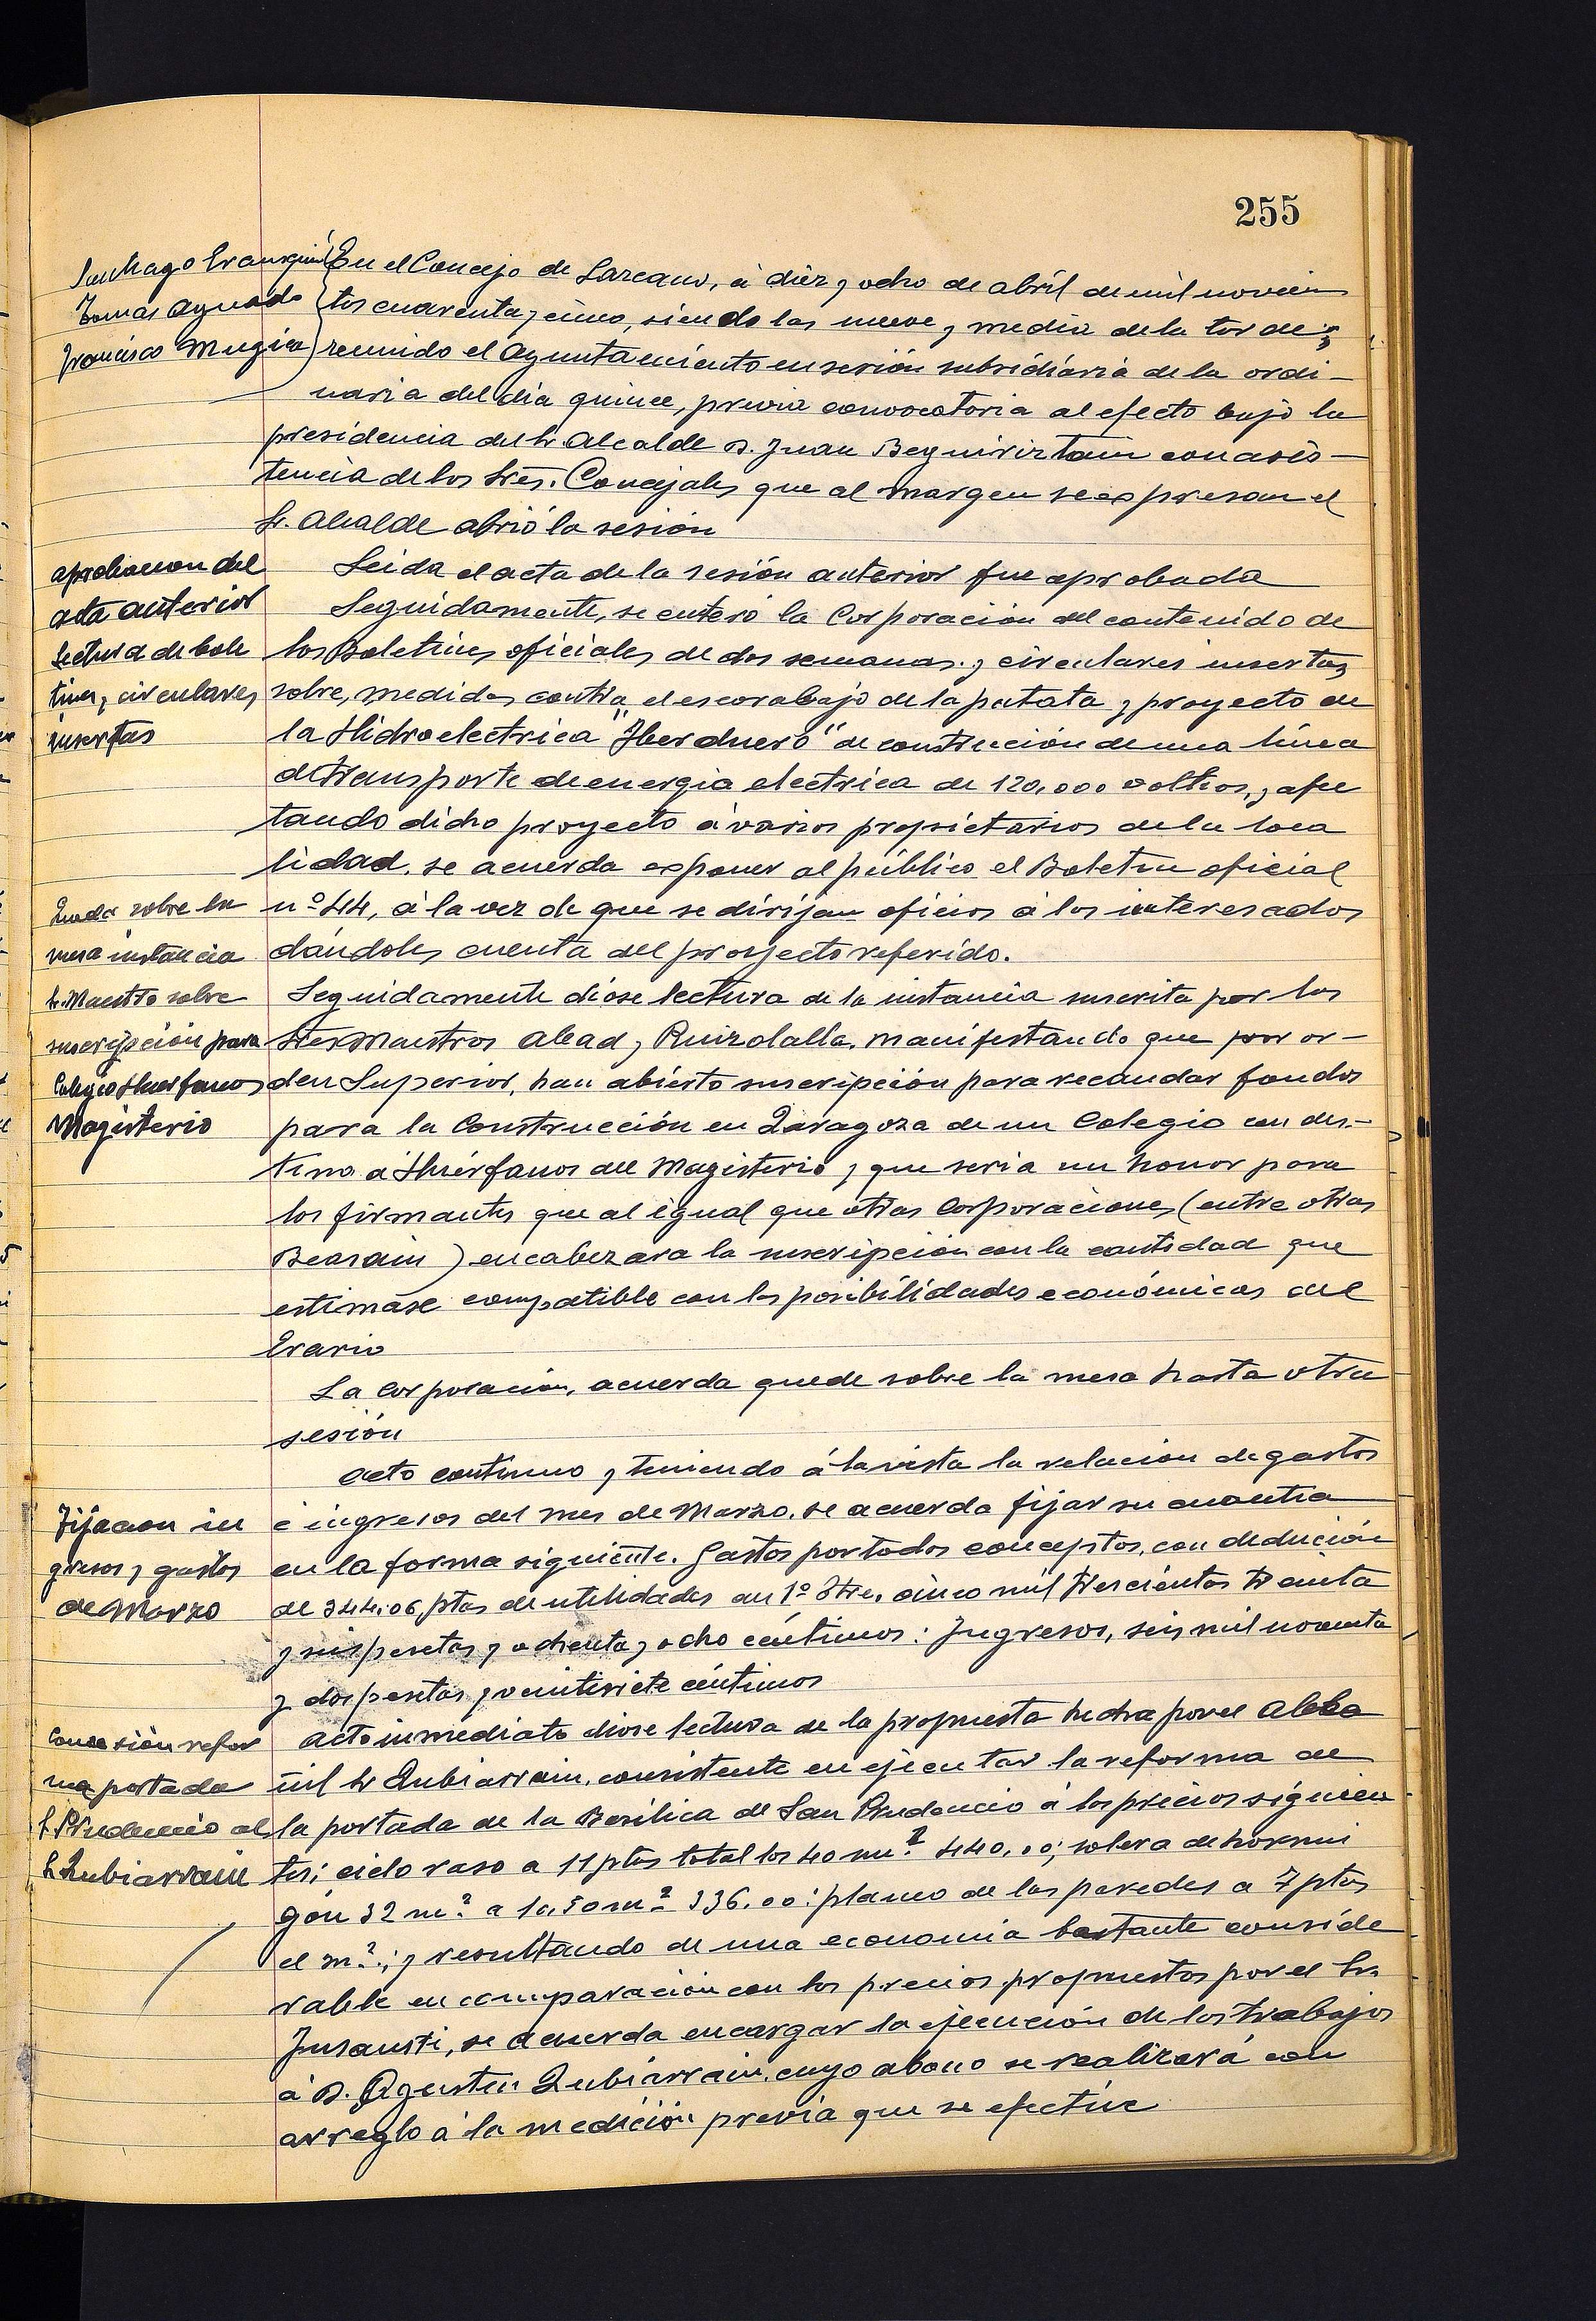 255
Santiago Eranzquin
Tomas Aguado
Francisco Mugica
En el Concejo de Lazcano, à diez y ocho de abril de mil novecien
tos cuarenta y cinco, siendo las nueve y media de la tarde;
reunido el Ayuntamiento en sesión subsidiaria de la ordi-
naria del dia quince, previa convocatoria al efecto bajo la
presidencia del Sr. Alcalde D. Juan Beguiriztain con asis-
tencia de los Sres. Concejales que al margen se expresan el
Sr. Alcalde abrió la sesión
aprobacion del
acta anterior
Leida el acta de la sesión anterior fue aprobada
Lectura de bole
tines, circulares
insertas
Seguidamente, se enteró la Corporación del contenido de
los Boletines oficiales de dos semanas y circulares insertas
sobre, medidas contra el escorabajo de la patata y proyecto de
la Hidroelectrica "Iberduero" de construcción de una línea
de transporte de energia electrica de 120.000 voltios, y afec
tando dicho proyecto à varios propietarios de la loca
lidad, se acuerda exponer al público el Boletin oficial
nº 44, à la vez de que se dirijan oficios à los interesados
dándoles cuenta del proyecto referido.
Queda sobre la
mesa instancia
Sr. Maestro sobre
suscripción para
Colegio Huerfanos
Magisterio
Seguidamente dióse lectura de la instancia suscrita por los
Sres Maestros Abad y Ruizolalla, manifestando que por or-
den Superior, han abierto suscripción para recaudar fondos
para la Construcción en Zaragoza de un Colegio con des-
tino à Huérfanos del Magisterio y que seria un honor para
los firmantes que al igual que otras Corporaciones (entre otras
Beasain) encabezara la suscripción con la cantidad que
estimase compatible con las posibilidades económicas del
Erario
La Corporación, acuerda quede sobre la mesa hasta otra
sesión
Fijacion in
gresos y gastos
de Marzo
Acto continuo y teniendo á la vista la relacion de gastos
è ingresos del mes de Marzo, se acuerda fijar su cuantia
en la forma siguiente. Gastos por todos conceptos, con deducción
de 344,06 ptas de utilidades en 1º Stre. cinco mil trescientas treinta
y seis pesetas y ochenta y ocho céntimos: Ingresos, seis mil noventa
y dos pesetas y veintisiete céntimos
Concesión refor
ma portada
S. Prudencio al
Sr. Zubiarrain
Acto inmediato diose lectura de la propuesta hecha por el Alba
ñil Sr Zubiarrain, consistente en ejecutar la reforma de
la portada de la Basílica de San Prudencio à los precios siguien
tes; cielo raso a 11 ptas total los 40 m.² 440,00; solera de hormi
gón 32 m.² a 10,50 m² 336.00: planeo de las paredes a 7 ptas
el m².; y resultando de una economia bastante conside
rable en comparación con los precios propuestos por el Sr.
Insausti, se acuerda encargar la ejecución de los trabajos
à D. Agustin Zubiarrain, cuyo abono se realizará con
arreglo à la medición previa que se efectúe